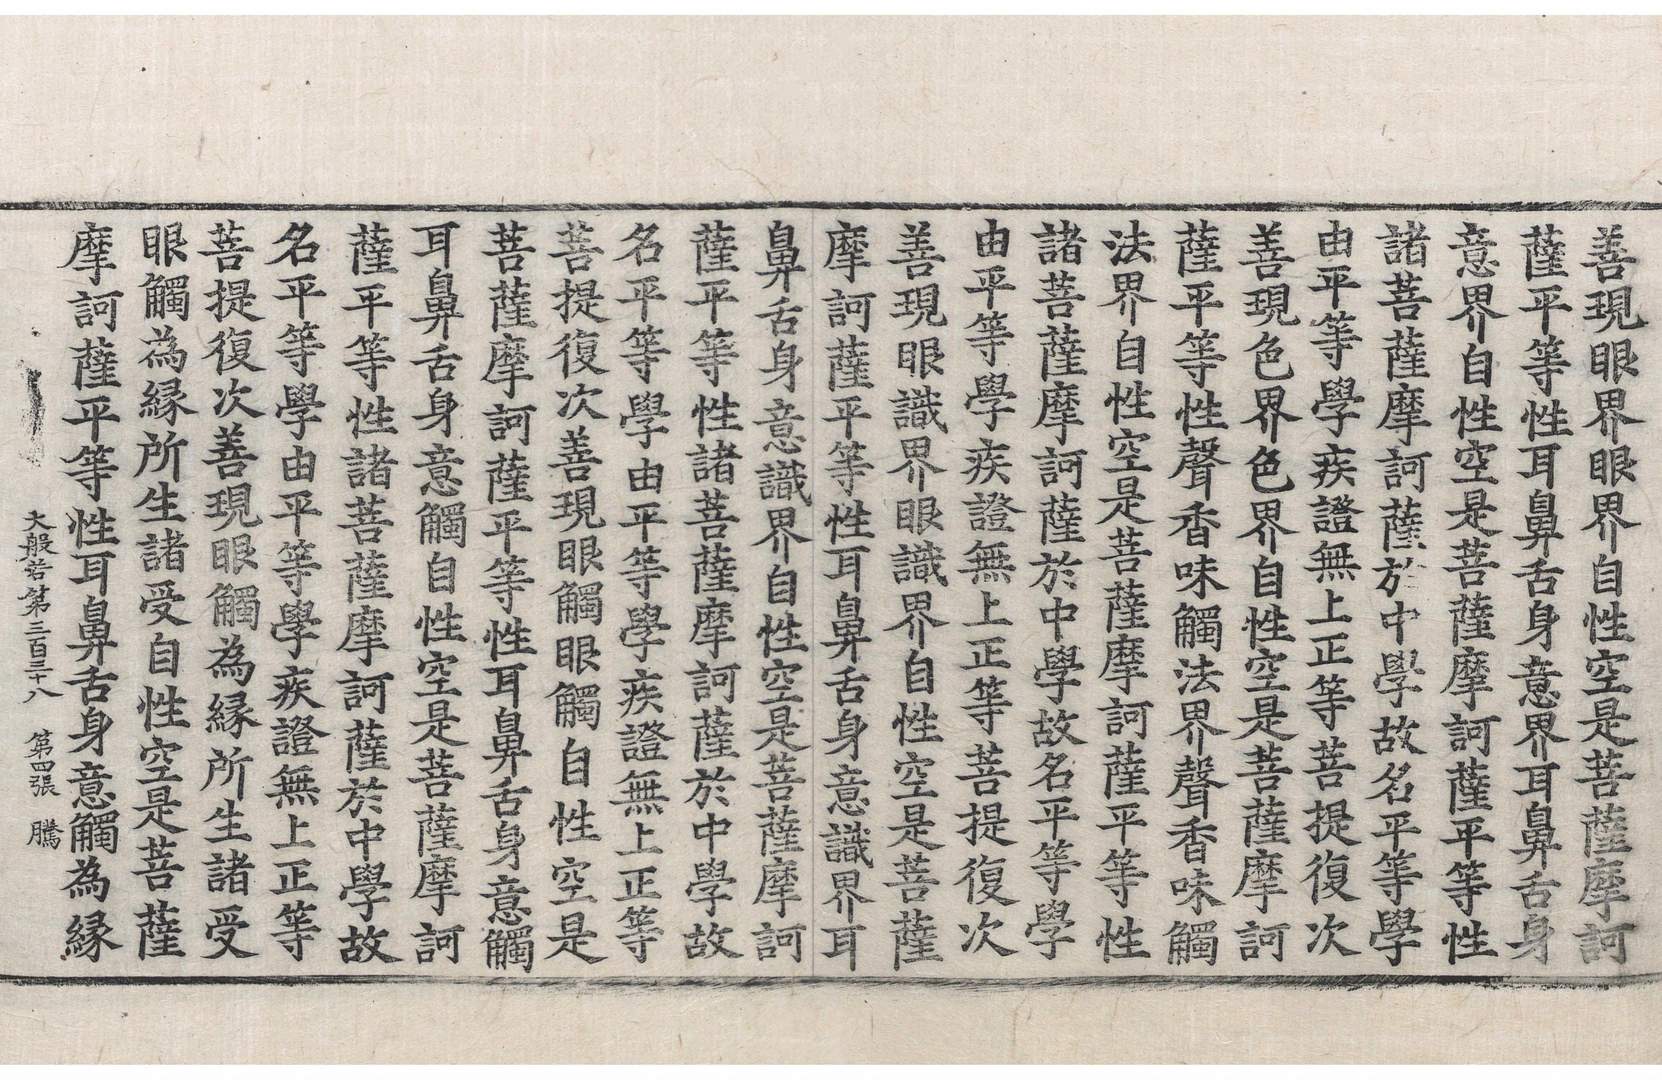 善現眼界眼界自性空是菩薩摩訶
薩平等性耳鼻舌身意界耳鼻舌身
意界自性空是菩薩摩訶薩平等性
諸菩薩摩訶薩於中學故名平等學
由平等學疾證無上正等菩提復次
善現色界色界自性空是菩薩摩訶
薩平等性聲香味觸法界聲香味觸
法界自性空是菩薩摩訶薩平等性
諸菩薩摩訶薩於中學故名平等學
由平等學疾證無上正等菩提復次
善現眼識界眼識界自性空是菩薩
摩訶薩平等性耳鼻舌身意識界耳
鼻舌身意識界自性空是菩薩摩訶
薩平等性諸菩薩摩訶薩於中學故
名平等學由平等學疾證無上正等
菩提復次善現眼觸眼觸自性空是
菩薩摩訶薩平等性耳鼻舌身意觸
耳鼻舌身意觸自性空是菩薩摩訶
薩平等性諸菩薩摩訶薩於中學故
名平等學由平等學疾證無上正等
菩提復次善現眼觸為緣所生諸受
眼觸為緣所生諸受自性空是菩薩
摩訶薩平等性耳鼻舌身意觸為緣
大般若第三百三十八 第四張 騰